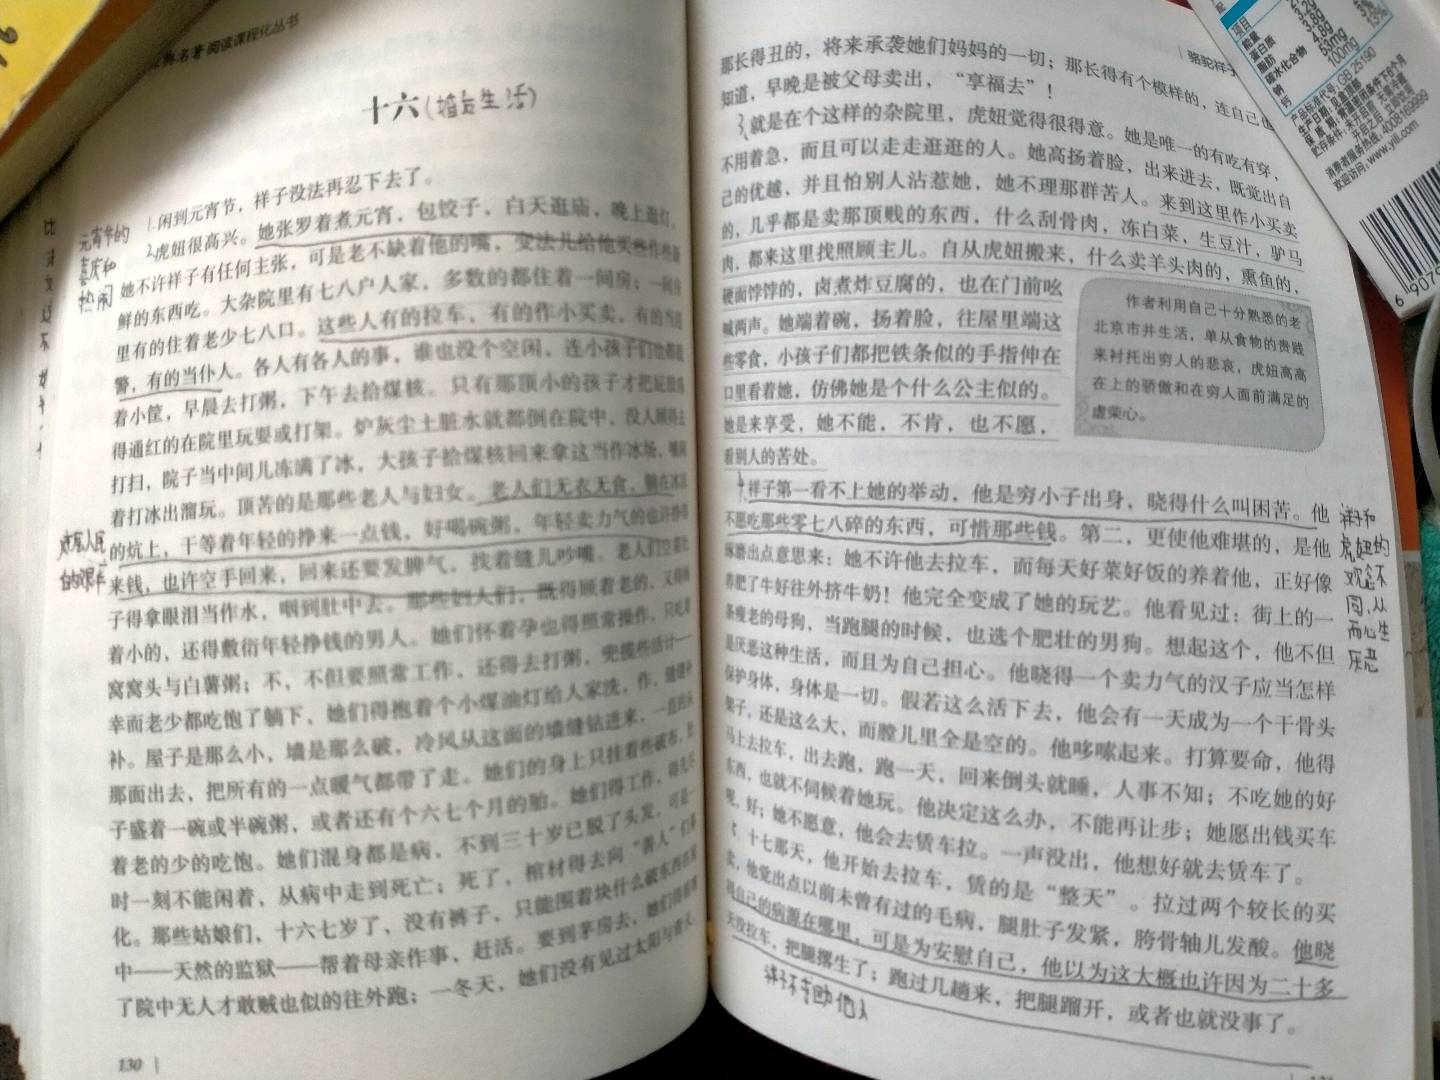 典名著阅读课程化丛书
十六(婚后生活)
闲到元宵节，祥子没法再忍下去了。
虎妞很高兴。她张罗着煮元宵，包饺子，白天逛庙，晚上逛灯。
她不许祥子有任何主张，可是老不缺着他的嘴，变法儿给他买些作些新
鲜的东西吃。大杂院里有七八户人家，多数的都住着一间房；一间房
里有的住着老少七八口。这些人有的拉车，有的作小买卖，有的当巡
警，有的当仆人。各人有各人的事，谁也没个空闲，连小孩子们也都提
着小筐，早晨去打粥，下午去拾煤核。只有那顶小的孩子才把屁股冻
得通红的在院里玩耍或打架。炉灰尘土脏水就都倒在院中，没人顾得去
打扫，院子当中间儿冻满了冰，大孩子拾煤核回来拿这当作冰场，嚷闹
着打冰出溜玩。顶苦的是那些老人与妇女。老人们无衣无食，躺在冰凉
的炕上，干等着年轻的挣来一点钱，好喝碗粥，年轻卖力气的也许挣得
来钱，也许空手回来，回来还要发脾气，找着缝儿吵嘴。老人们空着肚
子得拿眼泪当作水，咽到肚中去。那些妇人们，既得顾着老的，又得顾
着小的，还得敷衍年轻挣钱的男人。她们怀着孕也得照常操作，只吃着
窝窝头与白薯粥；不，不但要照常工作，还得去打粥，兜揽些活计——
幸而老少都吃饱了躺下，她们得抱着个小煤油灯给人家洗，作，缝缝补
补。屋子是那么小，墙是那么破，冷风从这面的墙缝钻进来，一直的从
那面出去，把所有的一点暖气都带了走。她们的身上只挂着些破布，肚
子盛着一碗或半碗粥，或者还有个六七个月的胎。她们得工作，得先尽
着老的少的吃饱。她们浑身都是病，不到三十岁已脱了头发，可是一
时一刻不能闲着，从病中走到死亡；死了，棺材得去向“善人”们募
化。那些姑娘们，十六七岁了，没有裤子，只能围着块什么破东西在屋
中——天然的监狱——帮着母亲作事，赶活。要到茅房去，她们得看准
了院中无人才敢贼也似的往外跑；一冬天，她们没有见过太阳与青天。
130
元宵节的
喜庆和
热闹
底层人民
的艰辛
骆驼祥子
那长得丑的，将来承袭她们妈妈的一切；那长得有个模样的，连自己也
知道，早晚是被父母卖出，“享福去”！
就是在个这样的杂院里，虎妞觉得很得意。她是唯一的有吃有穿，
不用着急，而且可以走走逛逛的人。她高扬着脸，出来进去，既觉出自
己的优越，并且怕别人沾惹她，她不理那群苦人。来到这里作小买卖
的，几乎都是卖那顶贱的东西，什么刮骨肉，冻白菜，生豆汁，驴马
肉，都来这里找照顾主儿。自从虎妞搬来，什么卖羊头肉的，熏鱼的，
硬面饽饽的，卤煮炸豆腐的，也在门前吆
喊两声。她端着碗，扬着脸，往屋里端这
些零食，小孩子们都把铁条似的手指伸在
口里看着她，仿佛她是个什么公主似的。
她是来享受，她不能，不肯，也不愿，
看别人的苦处。
作者利用自己十分熟悉的老
北京市井生活，单从食物的贵贱
来衬托出穷人的悲哀，虎妞高高
在上的骄傲和在穷人面前满足的
虚荣心。
祥子第一看不上她的举动，他是穷小子出身，晓得什么叫困苦。他
不愿吃那些零七八碎的东西，可惜那些钱。第二，更使他难堪的，是他
琢磨出点意思来：她不许他去拉车，而每天好菜好饭的养着他，正好像
养肥了牛好往外挤牛奶！他完全变成了她的玩艺。他看见过：街上的一
条瘦老的母狗，当跑腿的时候，也选个肥壮的男狗。想起这个，他不但
是厌恶这种生活，而且为自己担心。他晓得一个卖力气的汉子应当怎样
保护身体，身体是一切。假若这么活下去，他会有一天成为一个干骨头
架子，还是这么大，而膛儿里全是空的。他哆嗦起来。打算要命，他得
马上去拉车，出去跑，跑一天，回来倒头就睡，人事不知；不吃她的好
东西，也就不伺候着她玩。他决定这么办，不能再让步；她愿出钱买车
呢，好；她不愿意，他会去赁车拉。一声没出，他想好就去赁车了。
十七那天，他开始去拉车，赁的是“整天”。拉过两个较长的买
卖，他觉出点以前未曾有过的毛病，腿肚子发紧，胯骨轴儿发酸。他晓
得自己的病源在哪里，可是为安慰自己，他以为这大概也许因为二十多
天没拉车，把腿撂生了；跑过几趟来，把腿蹓开，或者也就没事了。
祥子和
虎妞的
观念不
同，从
而心生
厌恶
项目
能量
蛋白质
脂肪
碳水化合物
钠
钙
3.2g
3.8g
4.8g
53mg
100mg
产品标准代号:GB 25190
欢迎访问:www.yili.com
消费者服务热线:4008169999
6 907